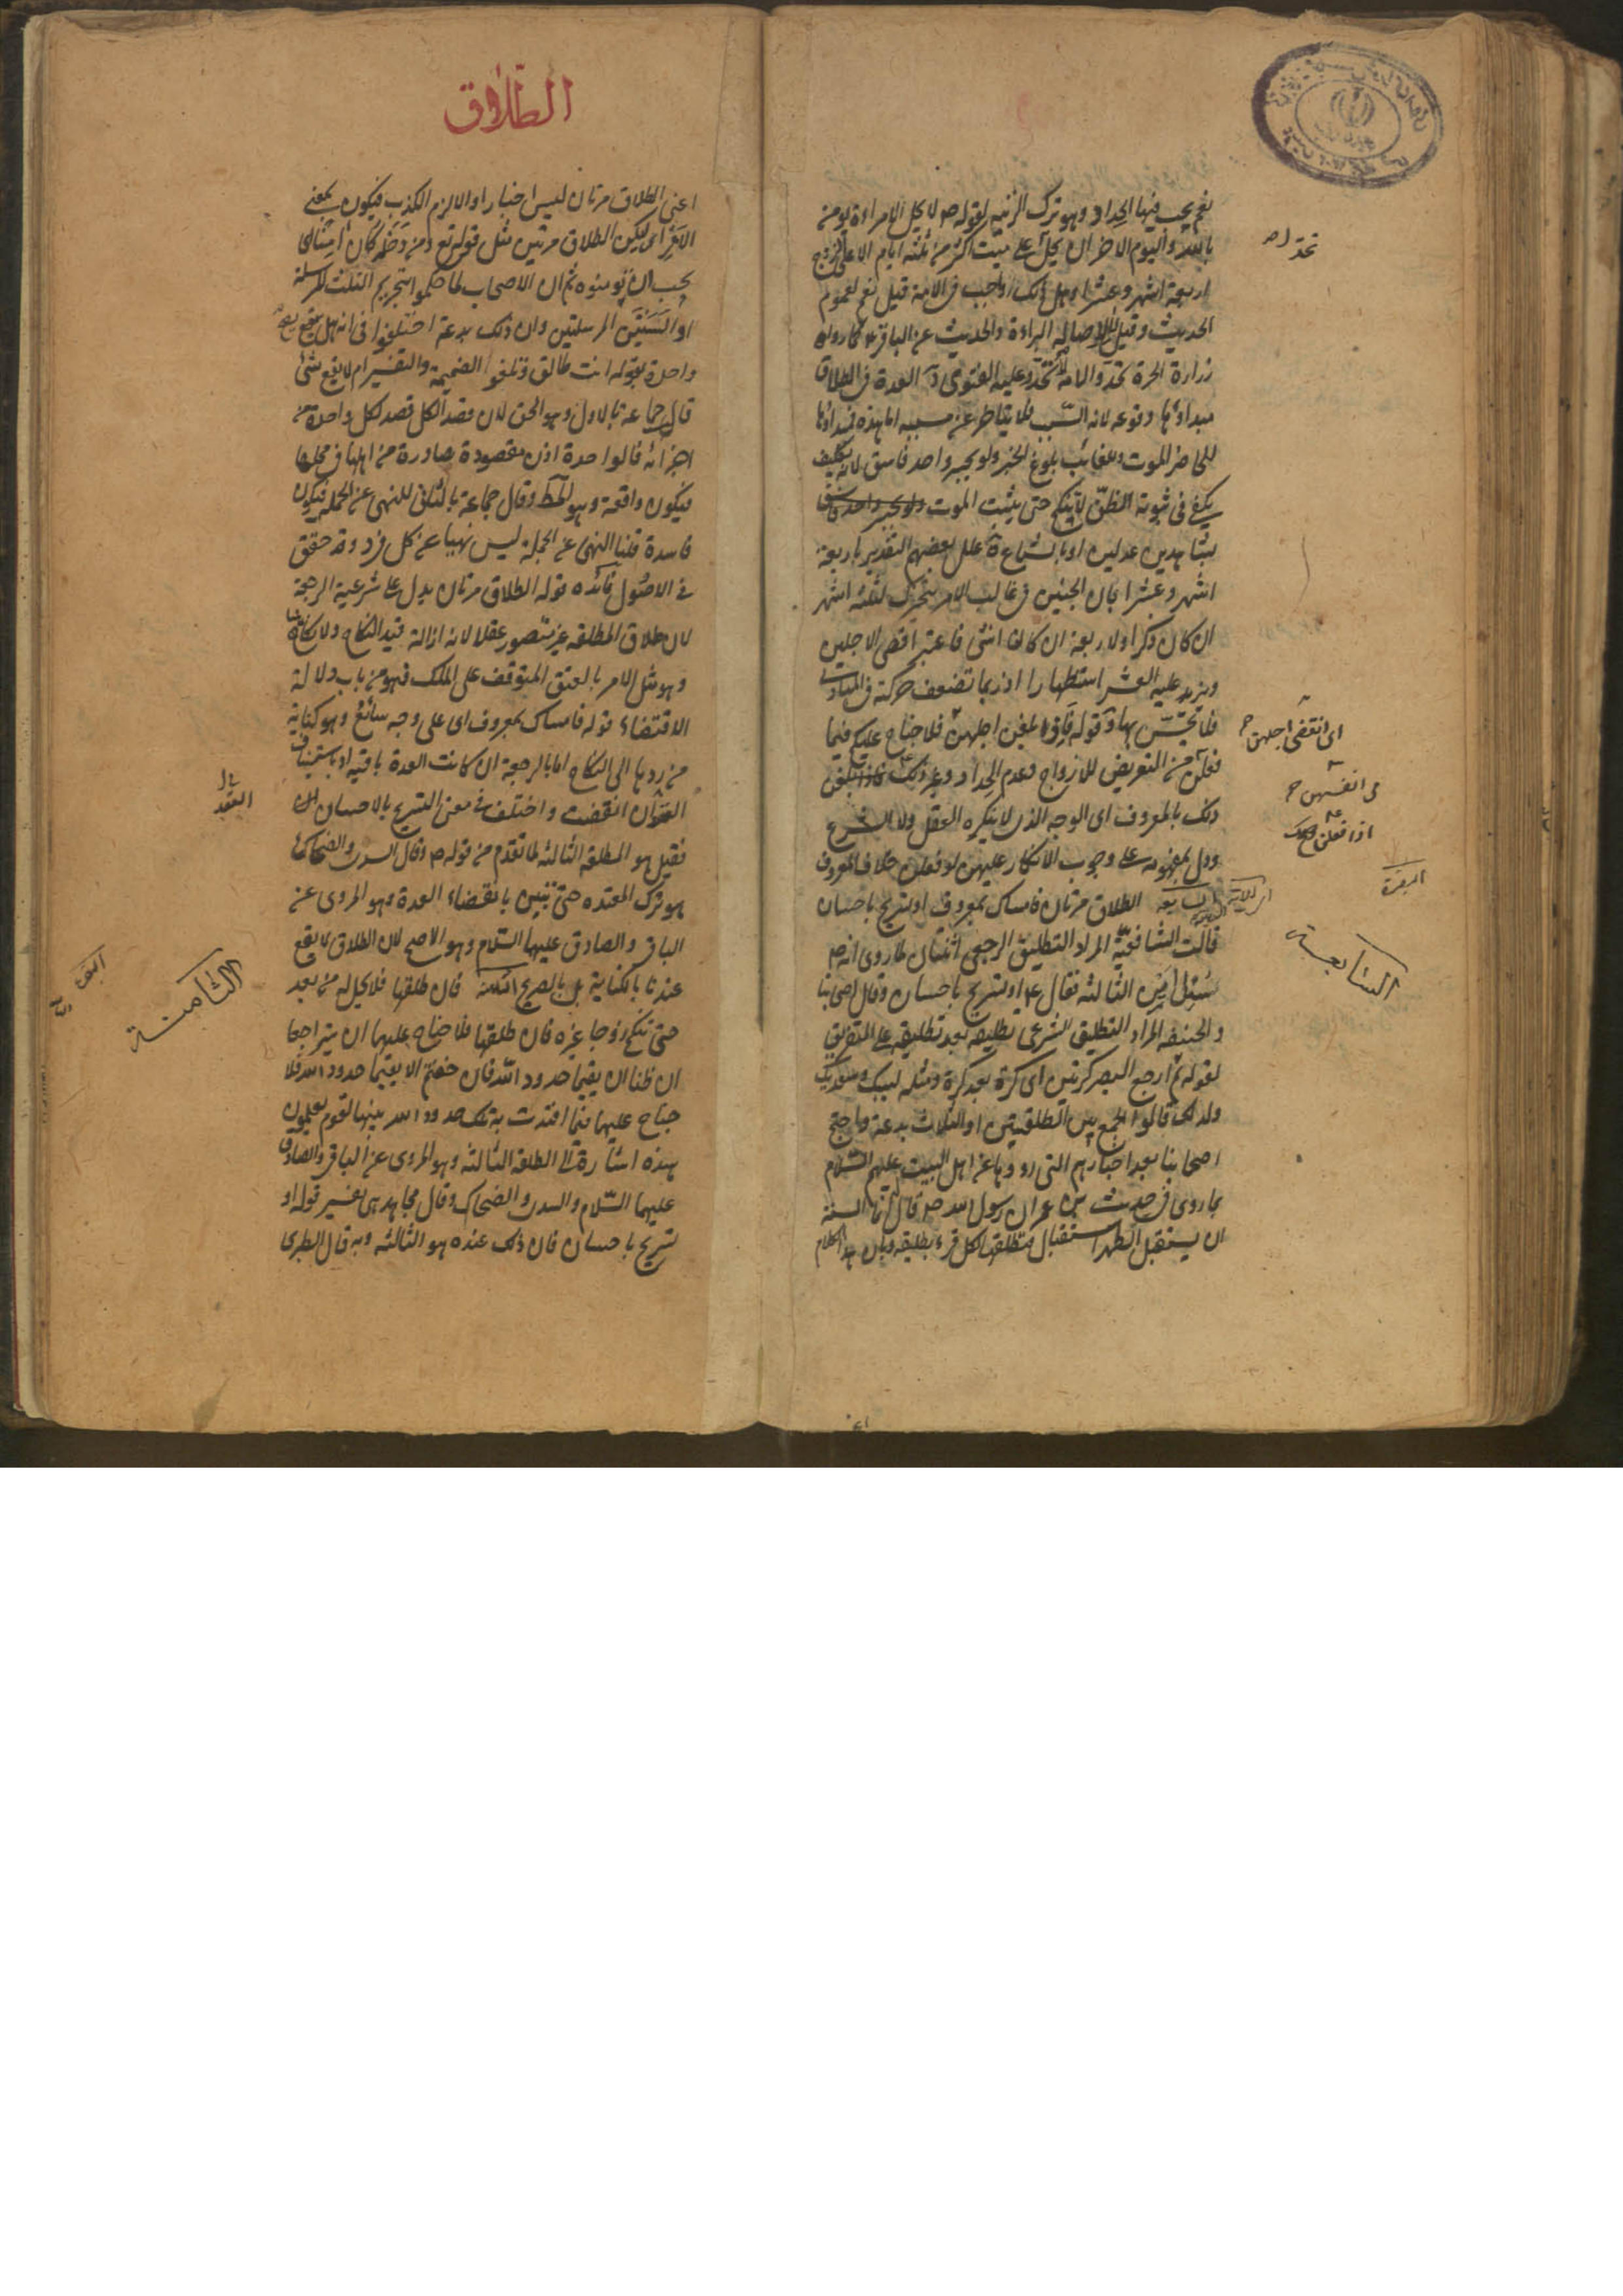 نعم يجب فيها الحداد وهو ترك الزينة لقوله ص لا يحل لامراءة يومن
بالله واليوم الاخر ان تحد على ميت اكثر من ثلثه ايام الا على زوج
اربعة اشهر وعشرا وهل ذلك واجب في الامة قيل نعم لعموم
الحديث وقيل لا لاصالة البراءة والحديث عن الباقر ع كما رواه
زرارة الحرة تحد والامة لا تحد وعليه الفتوى العدة في الطلاق
مبداؤها وقوعه لانه السبب فلا يتاخر عن مسببه اما هذه فمبداؤها
للحاضر الموت وللغائب بلوغ الخبر ولو بخبر واحد فاسق لانه
يكفي في ثبوته الظن لا تنكح حتى يثبت الموت
بشاهدين عدلين او بالشياع علل بعضهم التقدير باربعة
اشهر وعشرا بان الجنين في غالب الامر يتحرك لثلثه اشهر
ان كان ذكرا ولاربعة ان كان انثى فاعتبر اقصى الاجلين
وزيد عليه العشر استظهارا اذ ربما تضعف حركته في المبادى
فلا يحس بها قوله فاذا بلغن اجلهن فلا جناح عليكم فيما
فعلن من التعريض للازواج وعدم الحداد وغير ذلك
ذلك بالمعروف اى الوجه الذى لا ينكره العقل ولا الشرع
ودل بمفهومه على وجوب الانكار عليهن لو فعلن خلاف المعروف
الطلاق مرتان فامساك بمعروف او تسريح باحسان
قالت الشافعية المراد التطليق الرجعى اثنتان لما روى انه ص
سئل اين الثالثه فقال ع او تسريح باحسان وقال اصحابنا
والحنفه المراد التطليق الشرعى تطليقه بعد تطليقه على التفريق
لقوله ثم ارجع البصر كرتين اى كرة بعد كرة ومثله لبيك وسعديك
ولذلك قالوا الجمع بين الطلقتين او الثلاث بدعة واحتج
اصحابنا بعد اخبارهم التى رووها عن اهل البيت عليهم السلام
بما روى في حديث ابن عمر ان رسول الله ص قال انما السنة
ان يستقبل الطهر استقبالا فتطلقها لكل قرء تطليقه وبان هذا الكلام
اى انقضى اجلهن
فى انفسهن
اذا فعلن
البقرة
السابعة
الطلاق
اعنى الطلاق مرتان ليس اخبارا والا لزم الكذب فيكون بمعنى
الامر اى ليكن الطلاق مرتين مثل قوله تع ومن دخله كان امنا اى
يجب ان تومنوه ثم ان الاصحاب لما حكموا بتحريم الثلث المرسلة
او الثنتين المرسلتين وان ذلك بدعة اختلفوا في انه هل يقع
واحدة بقوله انت طالق وتلغو الضميمة والتفسير ام لا يقع شئ
قال جماعة بالاول وهو الحق لان قصد الكل قصد لكل واحدة من
اجزائه فالواحدة اذن مقصودة صادرة من اهلها في محلها
فيكون واقعة وهو المط وقال جماعة بالثانى للنهى عن الجملة فيكون
فاسدة قلنا النهى عن الجملة ليس نهيا عن كل فرد وقد حقق
في الاصول فائده قوله الطلاق مرتان يدل على شرعية الرجعة
لان طلاق المطلقه غير متصور عقلا لانه ازالة قيد النكاح ولا نكاح
وهو مثل الامر بالعتق المتوقف على الملك فهو من باب دلالة
الاقتضاء قوله فامساك بمعروف اى على وجه سائغ وهو كناية
من ردها الى النكاح اما بالرجعة ان كانت العدة باقية او باستيناف
العقد ان انقضت واختلف في معنى التسريح بالاحسان
فقيل هو الطلقة الثالثه لما تقدم من قوله ص وقال السدى والضحاك
هو ترك المعتده حتى تبين بانقضاء العدة وهو المروى عن
الباقر والصادق عليهما السلام وهو الاصح لان الطلاق لا يقع
عندنا بالكناية بل بالصريح الثامنة فان طلقها فلا تحل له من بعد
حتى تنكح زوجا غيره فان طلقها فلا جناح عليهما ان يتراجعا
ان ظنا ان يقيما حدود الله فان خفتم الا يقيما حدود الله فلا
جناح عليهما فيما افتدت به تلك حدود الله يبينها لقوم يعلمون
هذه اشارة الى الطلقة الثالثه وهو المروى عن الباقر والصادق
عليهما السلام والسدى والضحاك وقال مجاهد هى تفسير قوله او
تسريح باحسان فان ذلك عنده هو الثالثه وبه قال الطبرى
العقد
الثامنة